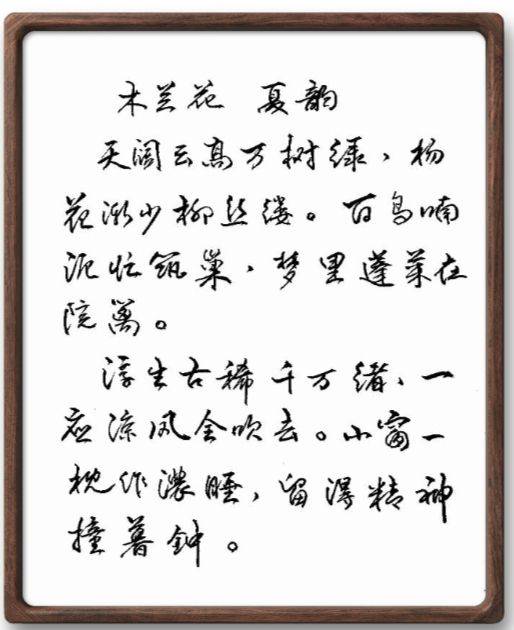 木兰花 夏韵
天阔云高万树绿,杨
花渐少柳丝缕。百鸟喃
泥忙筑巢,梦里蓬莱在
院篱。
浮生古稀千万绪,一
应凉风全吹去。小窗一
枕作浓睡,留得精神
撞暮钟。